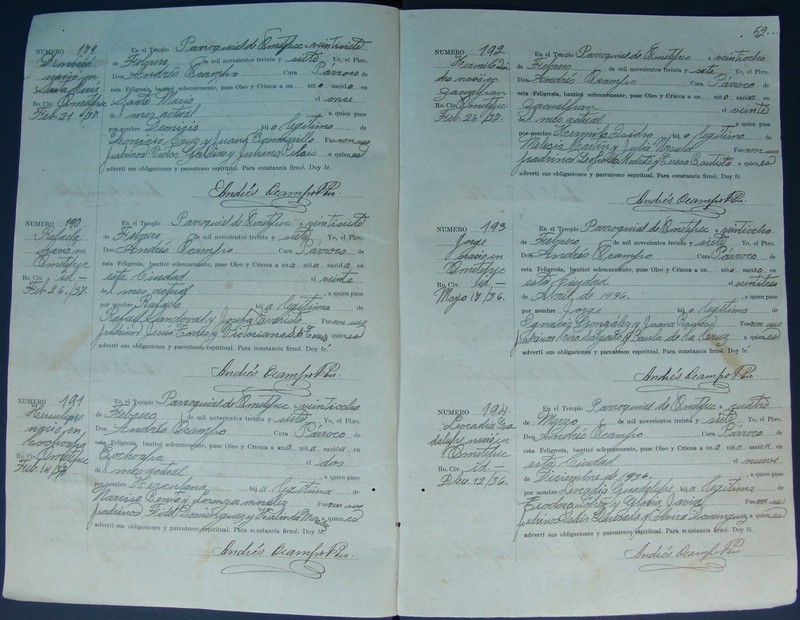 NUMERO 189
Dionicio
nació en
Santa María
Ro. Civ. Ometepec
Feb. 21 /37.
En el Templo Parroquial de Ometepec a veintisiete
de Febrero de mil novecientos treinta y siete Yo, el Pbro.
Don Andrés Ocampo Cura Párroco de
esta Feligresía, bauticé solemnemente, puse Oleo y Crisma a un niño nacido en
Santa María el once
de mes actual a quien puse
por nombre Dionicio hijo legítimo de
Dionicio Cruz y Juana Fueron sus
padrinos y Juliana a quienes
advertí sus obligaciones y parentesco espiritual. Para constancia firmé. Doy fé.
Andrés Ocampo Pbro.
NUMERO 190
Rafaela
nació en
Ometepec
Ro. Civ. id.—
Feb. 26. /37.
En el Templo Parroquial de Ometepec a veintisiete
de Febrero de mil novecientos treinta y siete Yo, el Pbro.
Don Andrés Ocampo Cura Párroco de
esta Feligresía, bauticé solemnemente, puse Oleo y Crisma a una niña nacida en
esta Ciudad el veinte
de mes actual a quien puse
por nombre Rafaela hija legítima de
Rafael Sandoval y Josefa Evaristo Fueron sus
padrinos Jesús Torres y Victoriana de la Cruz a quienes
advertí sus obligaciones y parentesco espiritual. Para constancia firmé. Doy fé.
Andrés Ocampo Pbro.
NUMERO 191
Herculana
nació en
Cochoapa
Ro. Civ. Ometepec
Feb. 14 /37.
En el Templo Parroquial de Ometepec a veintiocho
de Febrero de mil novecientos treinta y siete Yo, el Pbro.
Don Andrés Ocampo Cura Párroco de
esta Feligresía, bauticé solemnemente, puse Oleo y Crisma a una niña nacida en
Cochoapa el dos
de mes actual a quien puse
por nombre Herculana hija legítima de
Narciso y Lorenza Morales Fueron sus
padrinos Fidel Domínguez y a quienes
advertí sus obligaciones y parentesco espiritual. Para constancia firmé. Doy fé.
Andrés Ocampo Pbro.
59
NUMERO 192
nació en
Zacualpan
Ro. Civ. Ometepec
Feb. 26 /37.
En el Templo Parroquial de Ometepec a veintiocho
de Febrero de mil novecientos treinta y siete Yo, el Pbro.
Don Andrés Ocampo Cura Párroco de
esta Feligresía, bauticé solemnemente, puse Oleo y Crisma a un niño nacido en
Zacualpan el veinte
de mes actual a quien puse
por nombre Isidro hijo legítimo de
Martín y Julia Fueron sus
padrinos y Teresa Bautista a quienes
advertí sus obligaciones y parentesco espiritual. Para constancia firmé. Doy fé.
Andrés Ocampo Pbro.
NUMERO 193
Jorge
nació en
Ometepec
Ro. Civ. id.—
Mayo 17 /36.
En el Templo Parroquial de Ometepec a veintiocho
de Febrero de mil novecientos treinta y siete Yo, el Pbro.
Don Andrés Ocampo Cura Párroco de
esta Feligresía, bauticé solemnemente, puse Oleo y Crisma a un niño nacido en
esta Ciudad el veintitres
de Abril de 1936. a quien puse
por nombre Jorge hijo legítimo de
Ignacio González y Juana Fueron sus
padrinos Salgado y Paula de la Cruz a quienes
advertí sus obligaciones y parentesco espiritual. Para constancia firmé. Doy fé.
Andrés Ocampo Pbro.
NUMERO 194
Leocadia Gua
dalupe nació en
Ometepec
Ro. Civ. id.—
Dbre. 12 /36.
En el Templo Parroquial de Ometepec a cuatro
de Marzo de mil novecientos treinta y siete Yo, el Pbro.
Don Andrés Ocampo Cura Párroco de
esta Feligresía, bauticé solemnemente, puse Oleo y Crisma a una niña nacida en
esta Ciudad el nueve
de Diciembre de 1936. a quien puse
por nombre Leocadia Guadalupe hija legítima de
López y Gloria Javier Fueron sus
padrinos y Elvira Domínguez a quienes
advertí sus obligaciones y parentesco espiritual. Para constancia firmé. Doy fé.
Andrés Ocampo Pbro.